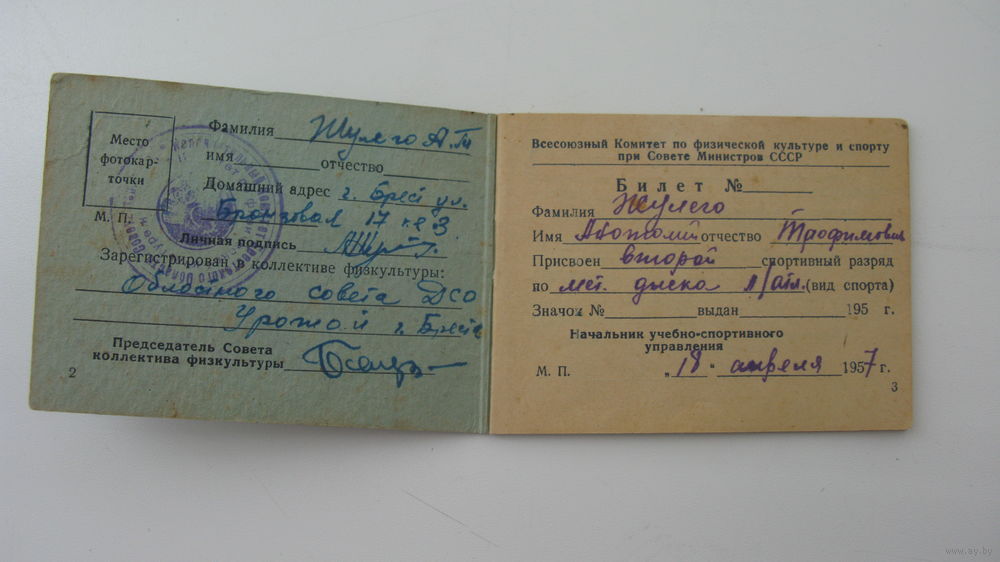 Место
фотокар-
точки
М. П.
Фамилия Жулего А.Т.
имя отчество
Домашний адрес г. Брест ул.
17 кв 3
Личная подпись
Зарегистрирован в коллективе физкультуры:
Областного совета ДСО
Урожай г. Бреста
Председатель Совета
коллектива физкультуры
2
Всесоюзный Комитет по физической культуре и спорту
при Совете Министров СССР
Билет №
Фамилия Жулего
Имя Анатолий отчество Трофимович
Присвоен второй спортивный разряд
по мет. диска л/атл. (вид спорта)
Значок № выдан 195 г.
Начальник учебно-спортивного
управления
М. П. „18" апреля 1957 г.
3
www.ay.by